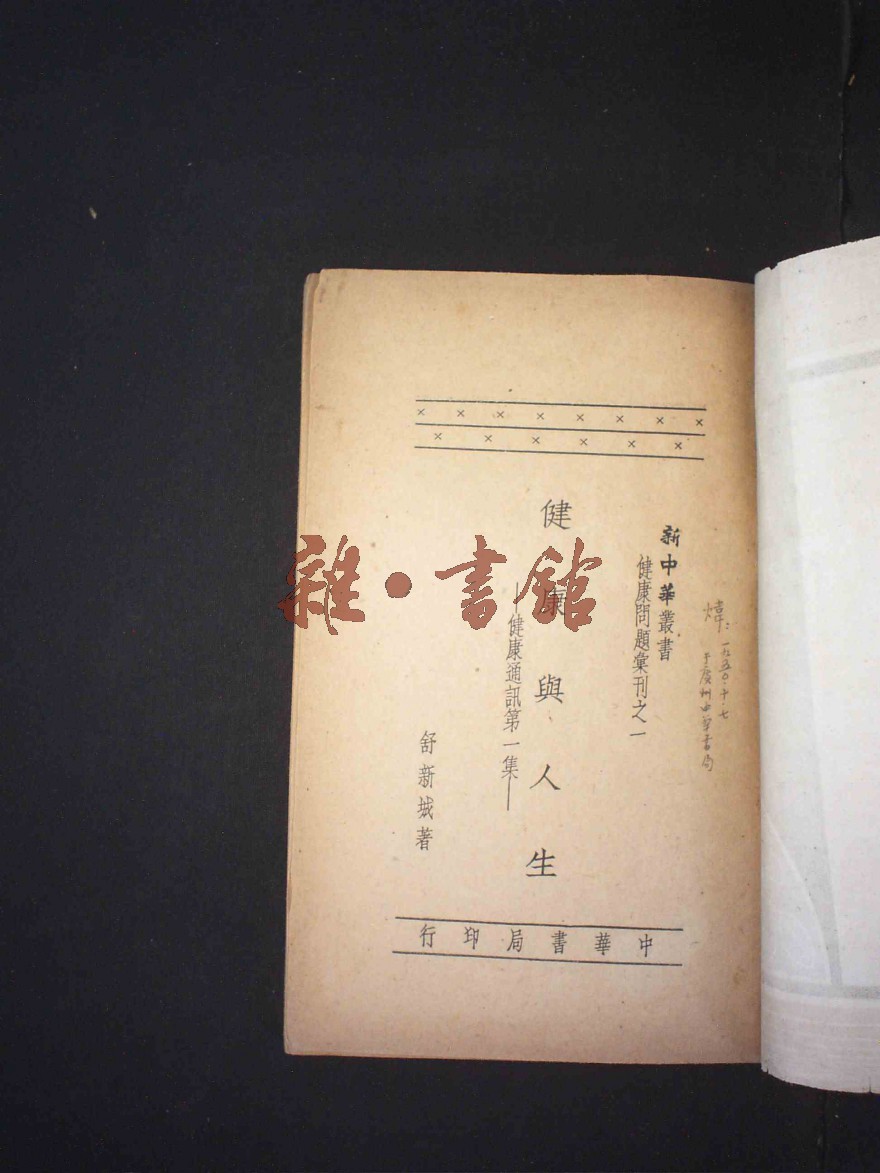 新中華叢書
健康問題彙刊之一
健康與人生
——健康通訊第一集——
舒新城著
中華書局印行
煒: 一九五〇·十·七
于廣州中華書局
雜·書館